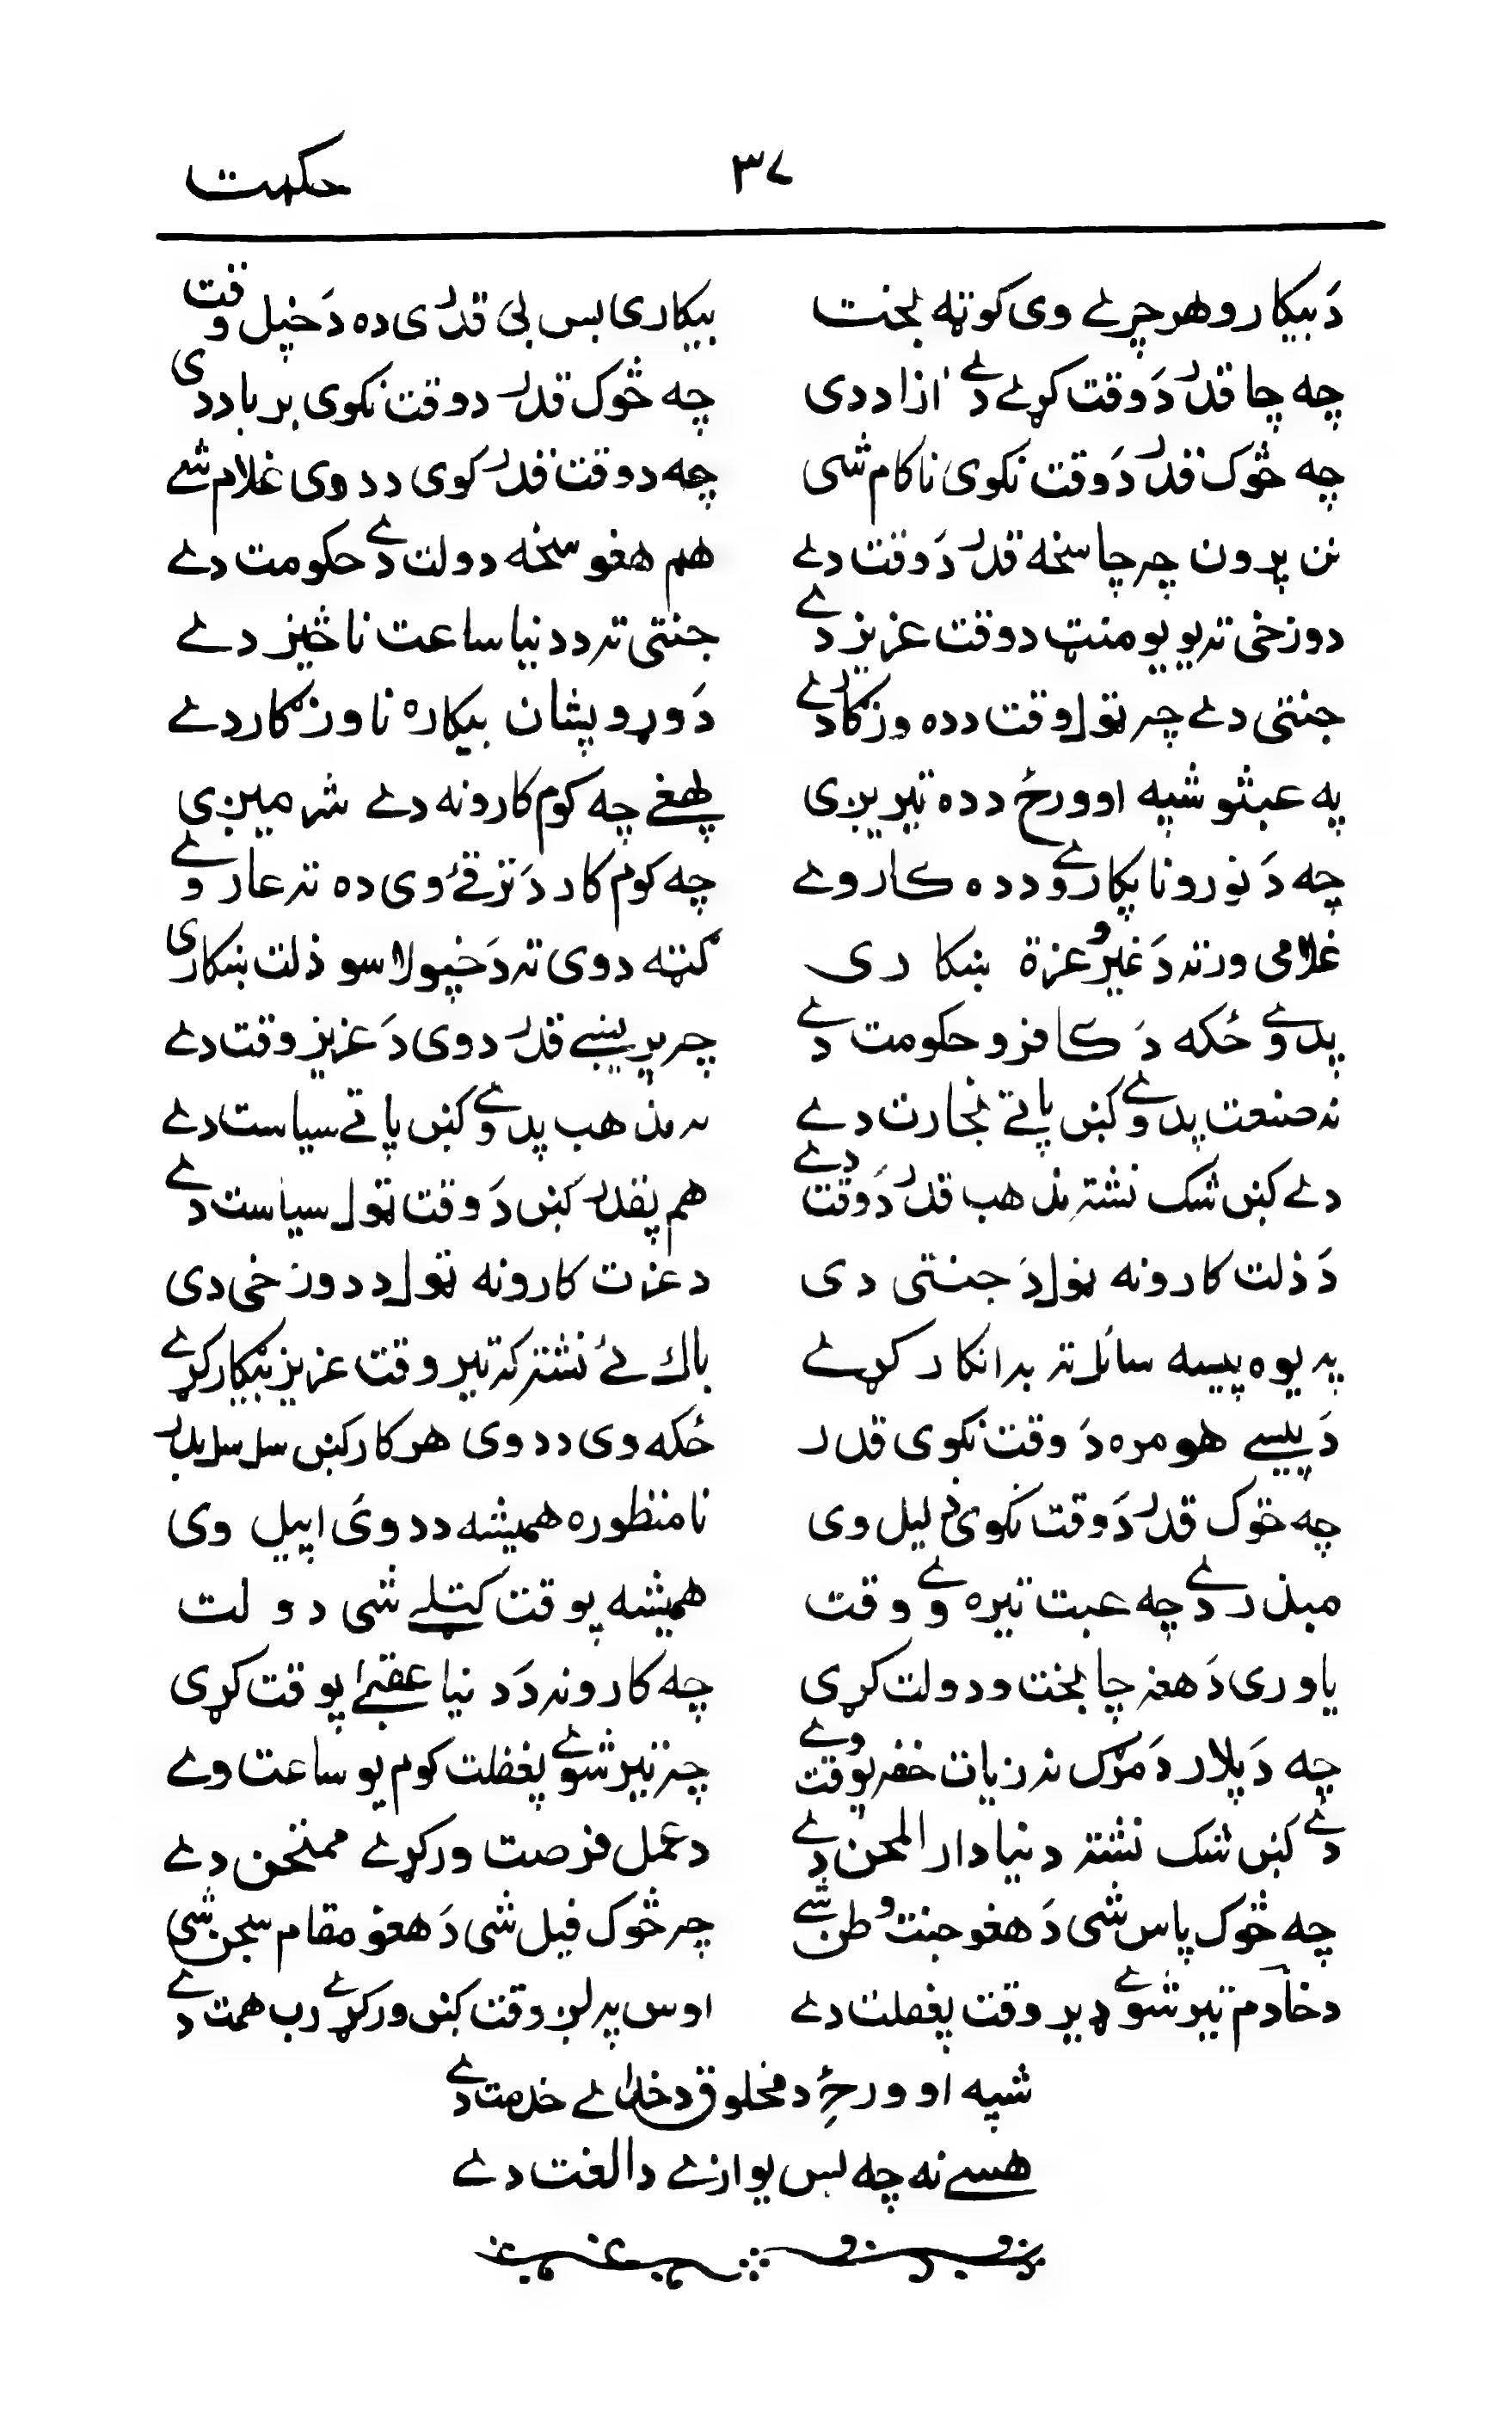 حکمت ۳۷
دَ بیکارو هر چرے وی کوټه بخت بیکاری بس بی قدری ده دَ خپل وقت
چه چا قدر دَ وقت کړے دے ازاد دی چه څوک قدر د وقت نکوی برباد دی
چه څوک قدر دَ وقت نکوی ناکام شی چه د وقت قدر کوی د دوی غلام شے
نن پرون چه چا سخه قدر دَ وقت دے هم هغو سخه دولت دے حکومت دے
دوزخی ته یو یو منټ د وقت عزیز دے جنتی ته د دنیا ساعت ناڅیز دے
جنتی دے چه ټول وقت د ده وزګار دے دَ وړو پشان بیکاره ناوزګار دے
په عبثو شپه او ورځ د ده تیریږی پهغے چه کوم کارونه دے شرمیږی
چه دَ نورو ناپکار وے د ده کار وے چه کوم کار دَ ترقۍ وی ده ته عار وے
غلامی ورته دَ غیرو عزة ښکاری ګټه دوی ته دَ خپولاسو ذلت ښکاری
پدوے ځکه دَ کافرو حکومت دے چه پریښے قدر دوی دَ عزیز وقت دے
نه صنعت پدوے کښ پاتے تجارت دے نه مذهب پدوے کښ پاتے سیاست دے
دے کښ شک نشته مذهب قدر دَ وقت دے هم پقدر کښ دَ وقت ټول سیاست دے
دَ ذلت کارونه ټول دَ جنتی دی د عزت کارونه ټول د دوزخی دی
په یوه پیسه سائل ته به انکار کړے باک ئے نشته که تیر وقت عزیز بیکار کړے
دَ پیسے هومره دَ وقت نکوی قدر ځکه وی د دوی هر کار کښ سل سل بدر
چه څوک قدر دَ وقت نکوی ذلیل وی نامنظوره همیشه د دوی اپیل وی
مبذر دے چه عبث تیره وے وقت همیشه پوقت ګټلے شی دولت
یاوری دَ هغه چا بخت و دولت کړی چه کارونه دَ دنیا عقبیٰ پوقت کړی
چه دَ پلار دَ مرګ نه زیات خفه پوقت وے چه تیر شوے پغفلت کوم یو ساعت وے
دے کښ شک نشته دنیا دار المحن دے د عمل فرصت ورکړے ممتحن دے
چه څوک پاس شی دَ هغو جنت وطن شے چه څوک فیل شی دَ هغو مقام سجن شی
د خادم تیر شوے ډیر وقت پغفلت دے اوس په لږ وقت کښ ورکړے رب همت دے
شپه او ورځ د مخلوق د خدائے خدمت دے
هسے نه چه بس یوازے دا لغت دے